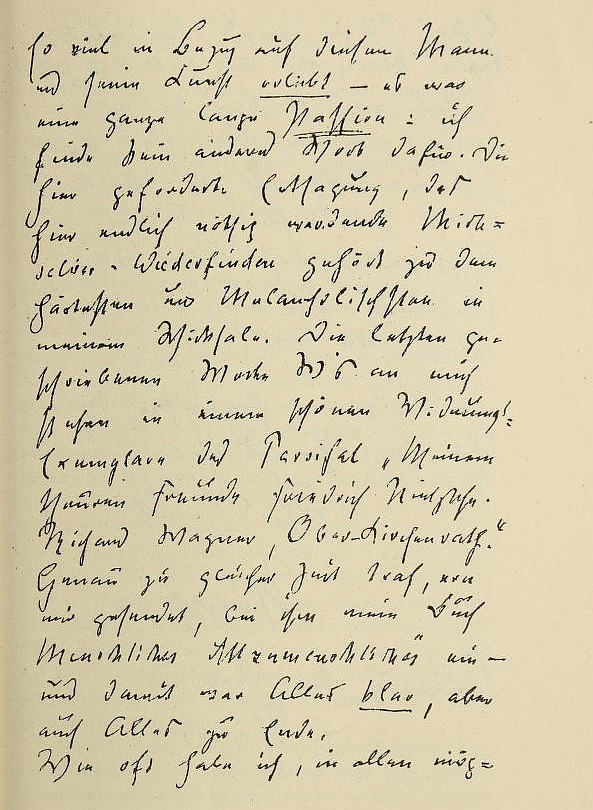 so viel in Bezug auf diesen Mann
und seine Kunst erlebt — es war
eine ganze lange Passion: ich
finde kein anderes Wort dafür. Die
hier geforderte Entsagung, das
hier endlich nöthig werdende Mich-
selber-Wiederfinden gehört zu dem
Härtesten und Melancholischsten in
meinem Schicksale. Die letzten ge-
schriebenen Worte W's an mich
stehen in einem schönen Widmungs-
Exemplare des Parsifal „Meinem
theuren Freunde Friedrich Nietzsche.
Richard Wagner, Ober-Kirchenrath."
Genau zu gleicher Zeit traf, von
mir gesendet, bei ihm mein Buch
Menschliches Allzumenschliches ein —
und damit war Alles klar, aber
auch Alles zu Ende.
Wie oft habe ich, in allen mög-